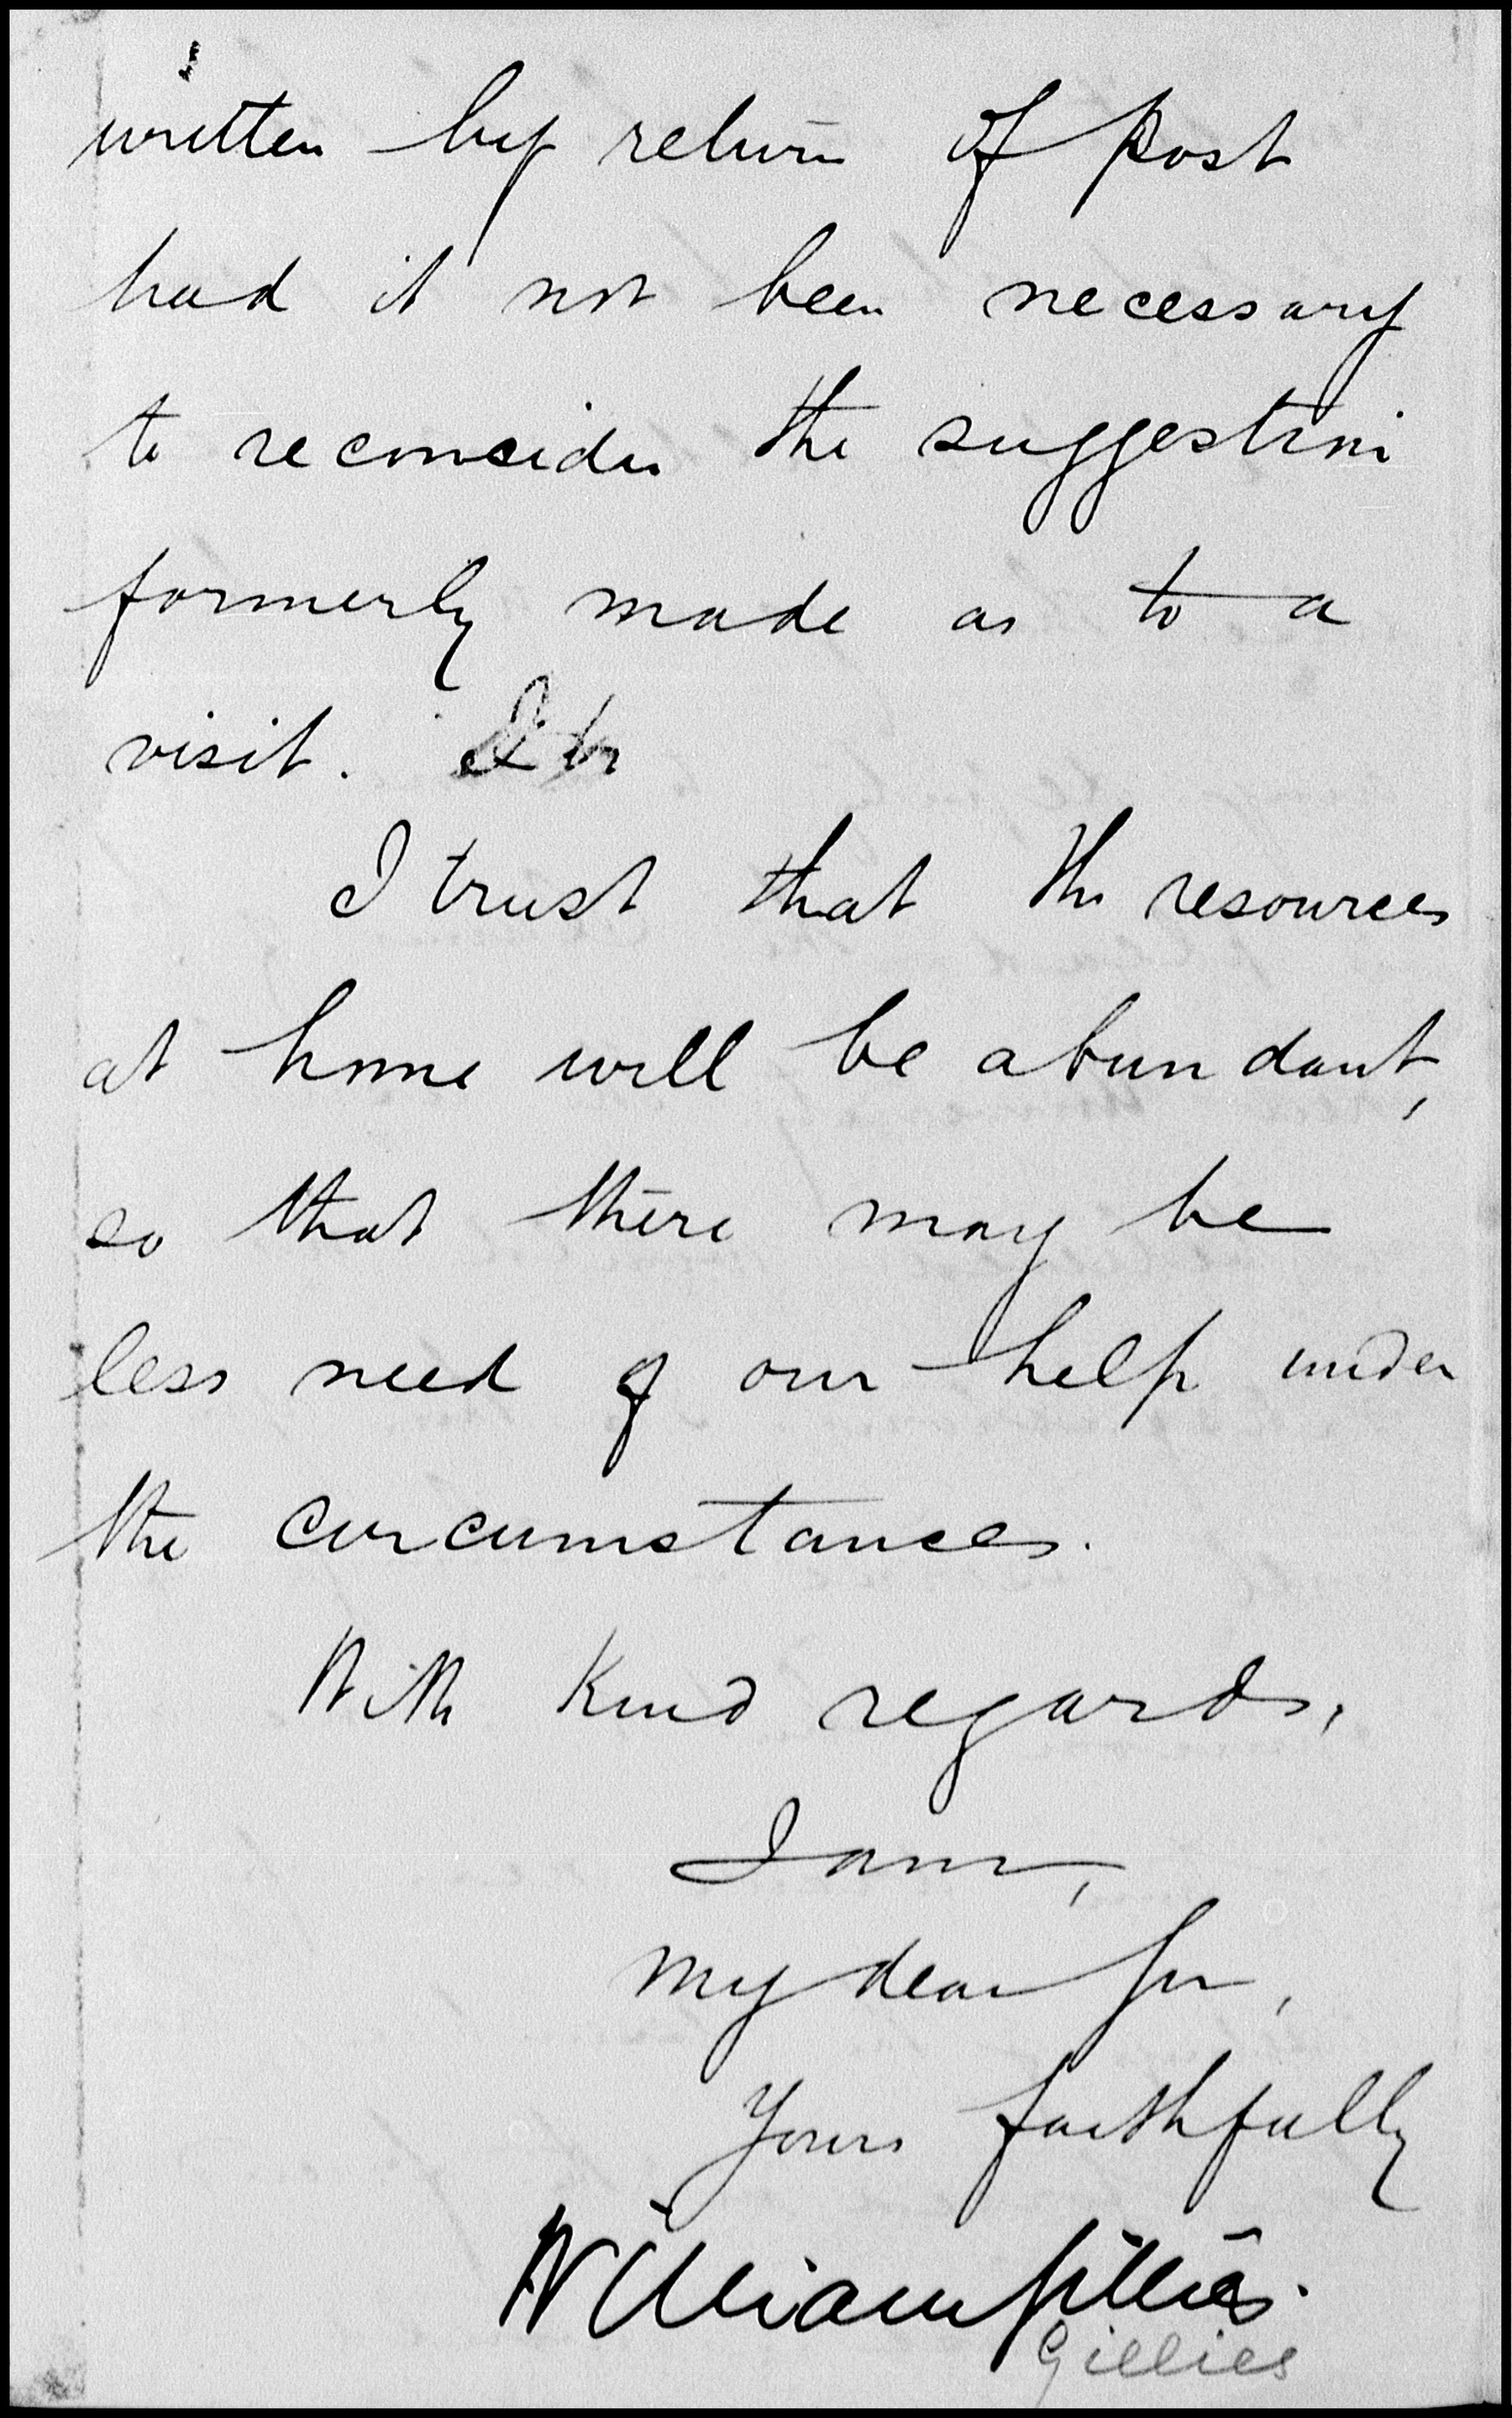 written by return of post
had it not been necessary
to reconsider the suggestion
formerly made as to a
visit.
I trust that the resources
at home will be abundant,
so that there may be
less need of our help under
the circumstances.
With kind regards,
I am,
my dear Sir,
Yours faithfully
William Gillies.
Gillies